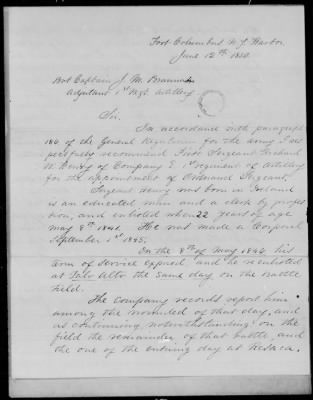 Fort Columbus N.Y. Harbor
June 12th 1850
Bvt Captain J. M. Brannan
Adjutant 1st Regt Artillery
Sir,
In accordance with paragraph
of the General Regulations for the Army I res
pectfully recommend First Sergeant
W. Henry of Company E 1st Regiment of Artillery
for the appointment of Ordnance Sergeant.
Sergeant Henry was born in Ireland
is an educated man and a clerk by profes
sion, and enlisted when 22 years of age
May 8th 1841. He was made a Corporal
September 1st 1845.
On the 8th of May 1846 his
term of service expired and he reenlisted
at Palo Alto the same day on the battle
field.
The Company records report him
among the wounded of that day, and
as continuing, notwithstanding, on the
field the remainder of that battle, and
the one of the ensuing day at Resaca.